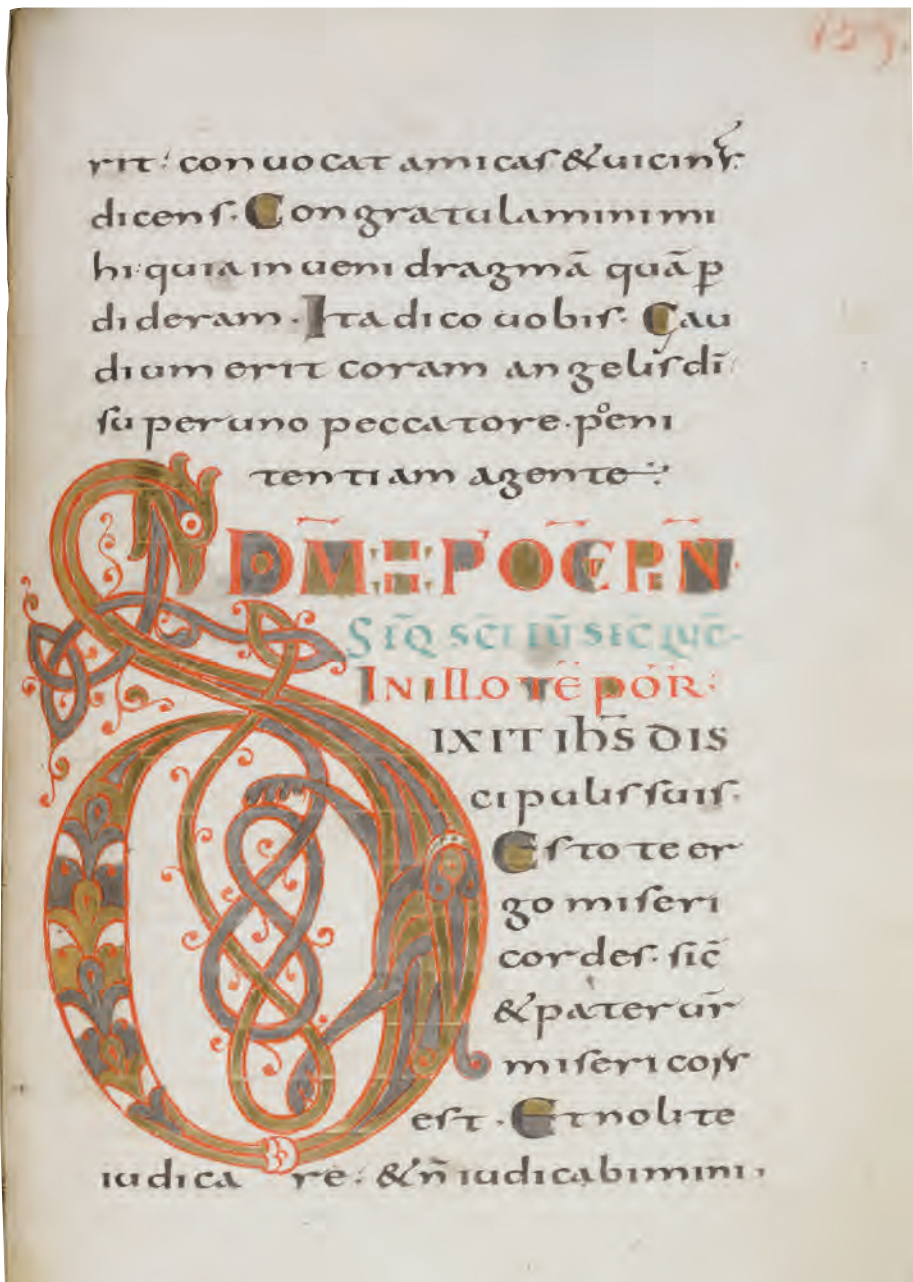 rit: conuocat amicas & uicinas
dicens. Congratulamini mi
hi: quia inueni dragmā quā p̲
dideram. Ita dico uobis. Gau
dium erit coram angelis dī
super uno peccatore. pęni
tentiam agente
DŌM P̄
SCĪ LUC̄
IN ILLO TĒPOR̄
DIXIT IHS̄ DIS
cipulis suis.
Estote er
go miseri
cordes. sic̄
& pater ur̄
misericors
est. Et nolite
iudicare: & n̄ iudicabimini,